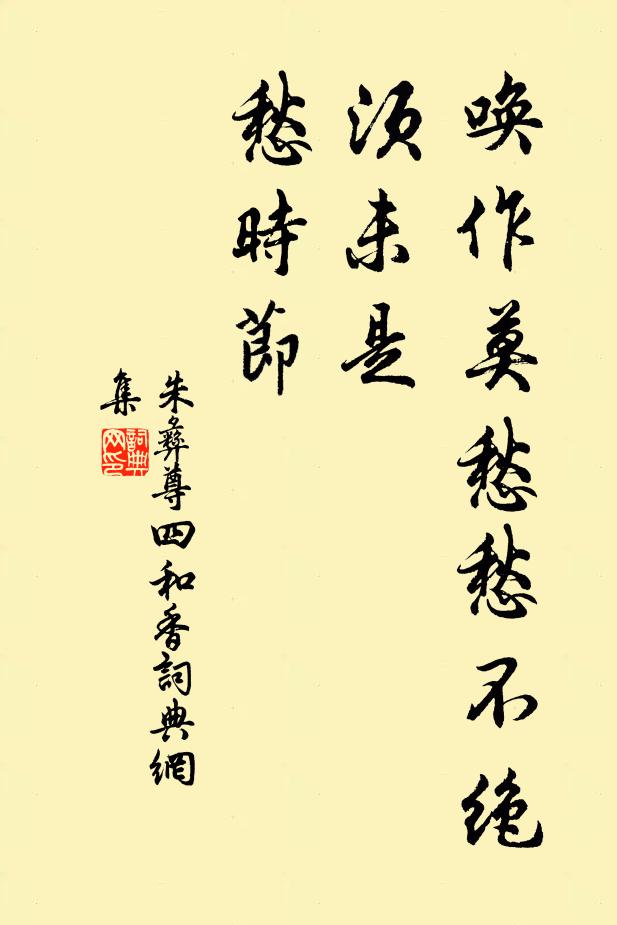 喚作莫愁愁不绝
須未是
愁時節
朱彝尊四和香詞典網
集
詞典
网印